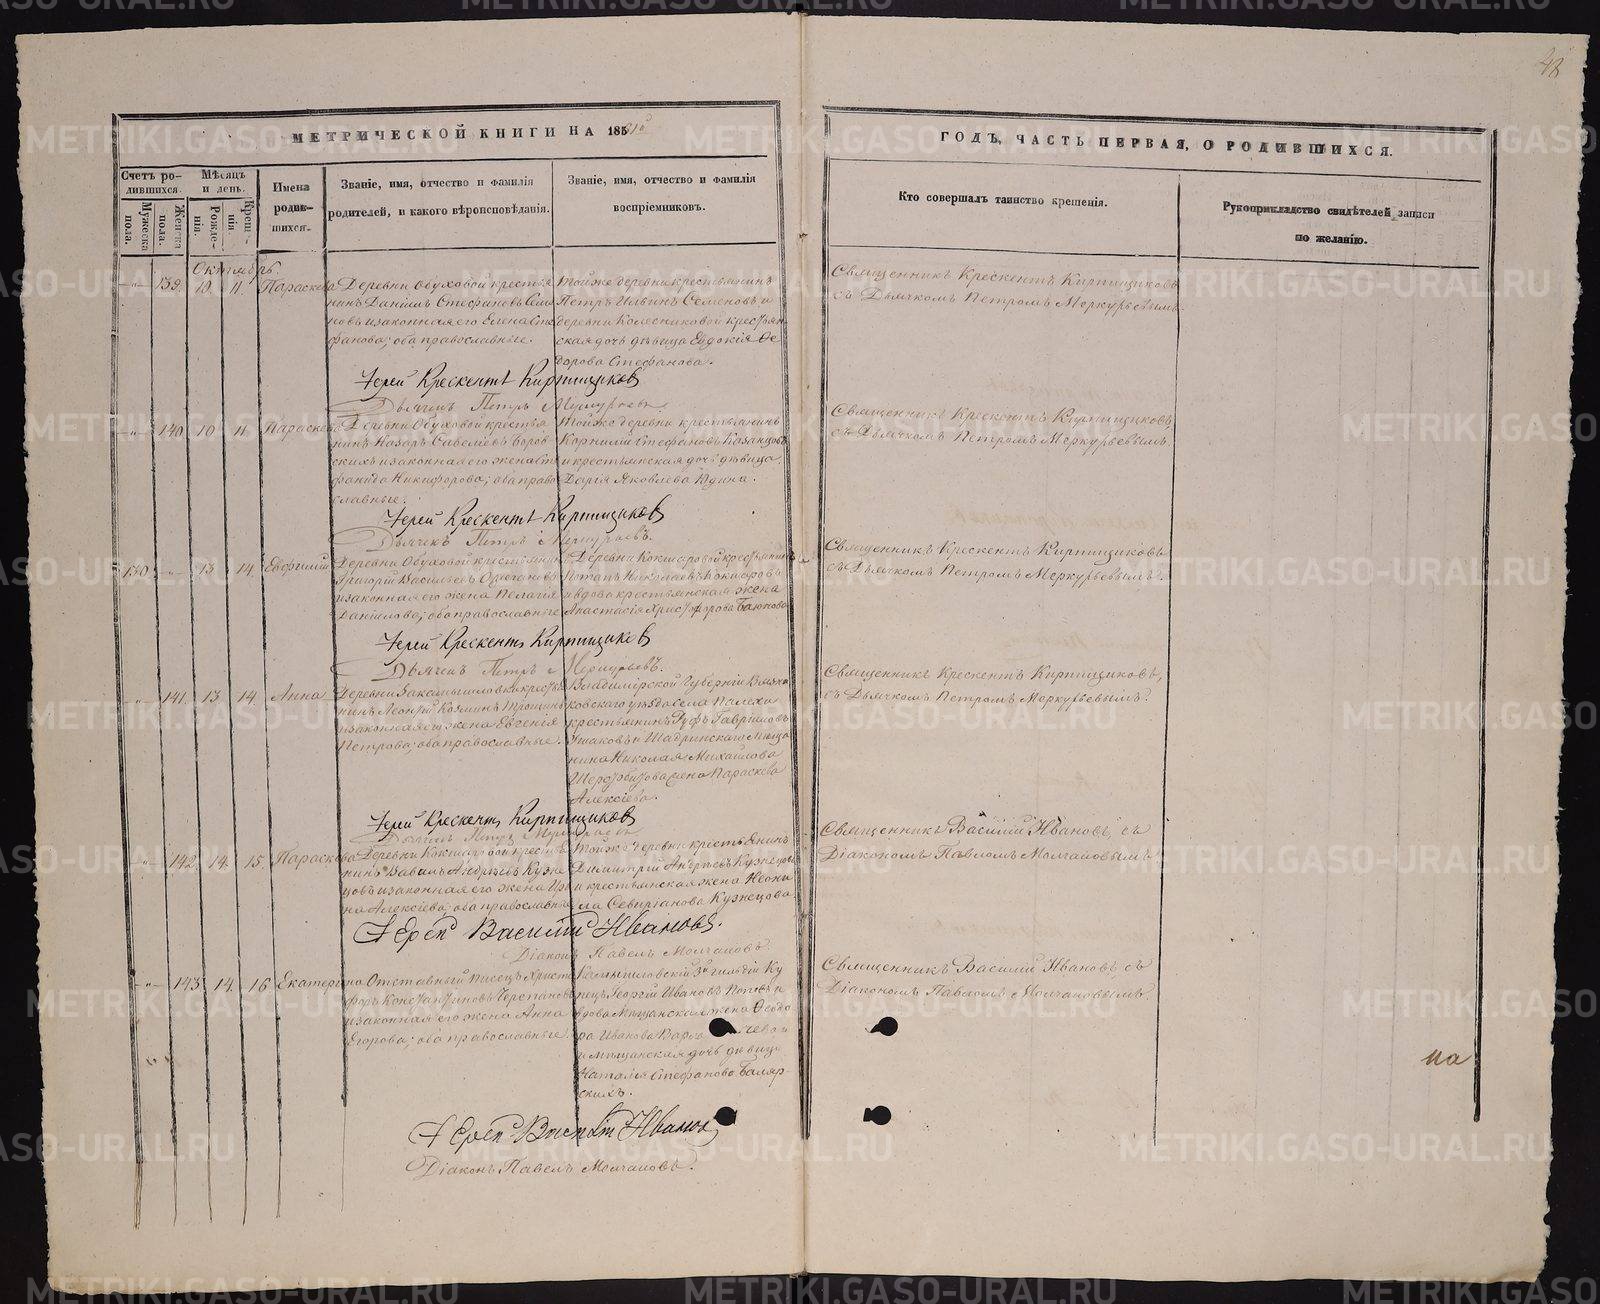 48
МЕТРИЧЕСКОЙ КНИГИ НА 185
ГОДЪ, ЧАСТЬ ПЕРВАЯ, О РОДИВШИХСЯ.
Счетъ родившихся.
Мужеска пола.
Женска пола.
Мѣсяцъ и день.
Рожденія.
Крещенія.
Имена родившихся.
Званіе, имя, отчество и фамилія
родителей, и какого вѣроисповѣданія.
Званіе, имя, отчество и фамилія
воспріемниковъ.
Кто совершалъ таинство крещенія.
Рукоприкладство свидѣтелей записи
по желанію.
Октябрь.
139. 10. 11. Параскева
Деревни Обуховой крестья
нинъ Даніилъ Стефановъ Семе
новъ и законная его Елена Сте
фанова; оба православные.
Тойже деревни крестьянинъ
Петръ Ильинъ Семеновъ и
деревни Колесниковой крестьян
ская дочь дѣвица Евдокія Ѳе
дорова Стефанова.
Священникъ Крескентъ Кирпищиковъ
съ Дьячкомъ Петромъ Меркурьевымъ.
Іерей Крескентъ Кирпищиковъ
Дьячекъ Петръ Меркурьевъ
140 10 11 Параскева
Деревни Обуховой крестья
нинъ Назаръ Савельевъ
скихъ и законная его жена Сте
фанида Никифорова; оба право
славные.
Тойже деревни крестьянинъ
Корнилій Стефановъ Казанцовъ
и крестьянская дочь дѣвица
Дарія Яковлева Юдина.
Священникъ Крескентъ Кирпищиковъ
съ Дьячкомъ Петромъ Меркурьевымъ.
Іерей Крескентъ Кирпищиковъ
Дьячекъ Петръ Меркурьевъ.
130 13 14. Евфимій
Деревни Обуховой крестьянинъ
Григорій Васильевъ
и законная его жена Пелагія
Даніилова; оба православные
Деревни Кокшаровой крестьянинъ
Потапъ Николаевъ Кокшаровъ
и вдова крестьянская жена
Анастасія Христофорова
Священникъ Крескентъ Кирпищиковъ
съ Дьячкомъ Петромъ Меркурьевымъ.
Іерей Крескентъ Кирпищиковъ
Дьячекъ Петръ Меркурьевъ.
141. 13 14. Анна
Деревни Закамышловки крестья
нинъ Леонтій Козминъ
и законная его жена Евгенія
Петрова; оба православные.
Владимірской Губерніи Вязни
ковскаго уѣзда села Палеха
крестьянинъ Руфъ Гавриловъ
Ушаковъ и Шадринскаго Мѣща
нина Николая Михайлова
жена Параскева
Алексіева.
Священникъ Крескентъ Кирпищиковъ,
съ Дьячкомъ Петромъ Меркурьевымъ.
Іерей Крескентъ Кирпищиковъ
Дьячекъ Петръ Меркурьевъ
142. 14. 15. Параскева
Деревни Кокшаровой крестья
нинъ Вавилъ Андреевъ Кузне
цовъ и законная его жена Ири
на Алексіева; оба православные
Тойже деревни крестьянинъ
Димитрій Андреевъ Кузнецовъ
и крестьянская жена Неони
ла Севиріанова Кузнецова
Священникъ Василій Ивановъ, съ
Діакономъ Павломъ Молчановымъ
Іерей Василій Ивановъ.
Діаконъ Павелъ Молчановъ.
143. 14. 16 Екатерина
Отставный писецъ Христо
форъ Константиновъ Черепановъ
и законная его жена Анна
Егорова; оба православные.
Камышловскій 3й гильдіи Ку
пецъ Георгій Ивановъ Поповъ и
вдова Мѣщанская жена Ѳеодо
ра Иванова
и мѣщанская дочь дѣвица
Наталія Стефанова
скихъ.
Священникъ Василій Ивановъ съ
Діакономъ Павломъ Молчановымъ.
на
Іерей Василій Ивановъ
Діаконъ Павелъ Молчановъ.
METRIKI.GASO-URAL.RU